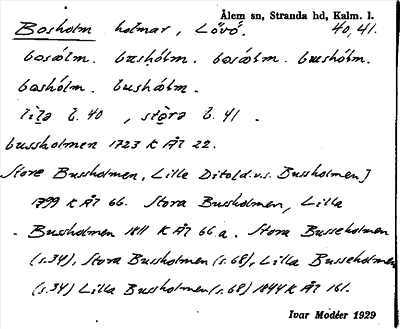 Ålem sn, Stranda hd, Kalm. l.
Bosholm holmar, Lövö. 40, 41.
bosólm. boshólm. bosólm. bushólm.
boshólm. bushólm.
lila b. 40, stora b. 41.
bussholmen 1723 K Ål 22.
Store Bussholmen, Lille Ditold.v.s. Bussholmen]
1799 K Ål 66. Stora Bussholmen, Lilla
- Bussholmen 1811 K Ål 66 a. Stora Busseholmen
(s.34), Stora Bussholmen (s.68), Lilla Busseholmen
(s.34) Lilla Bussholmen (s.68) 1844 K Ål 161.
Ivar Modéer 1929